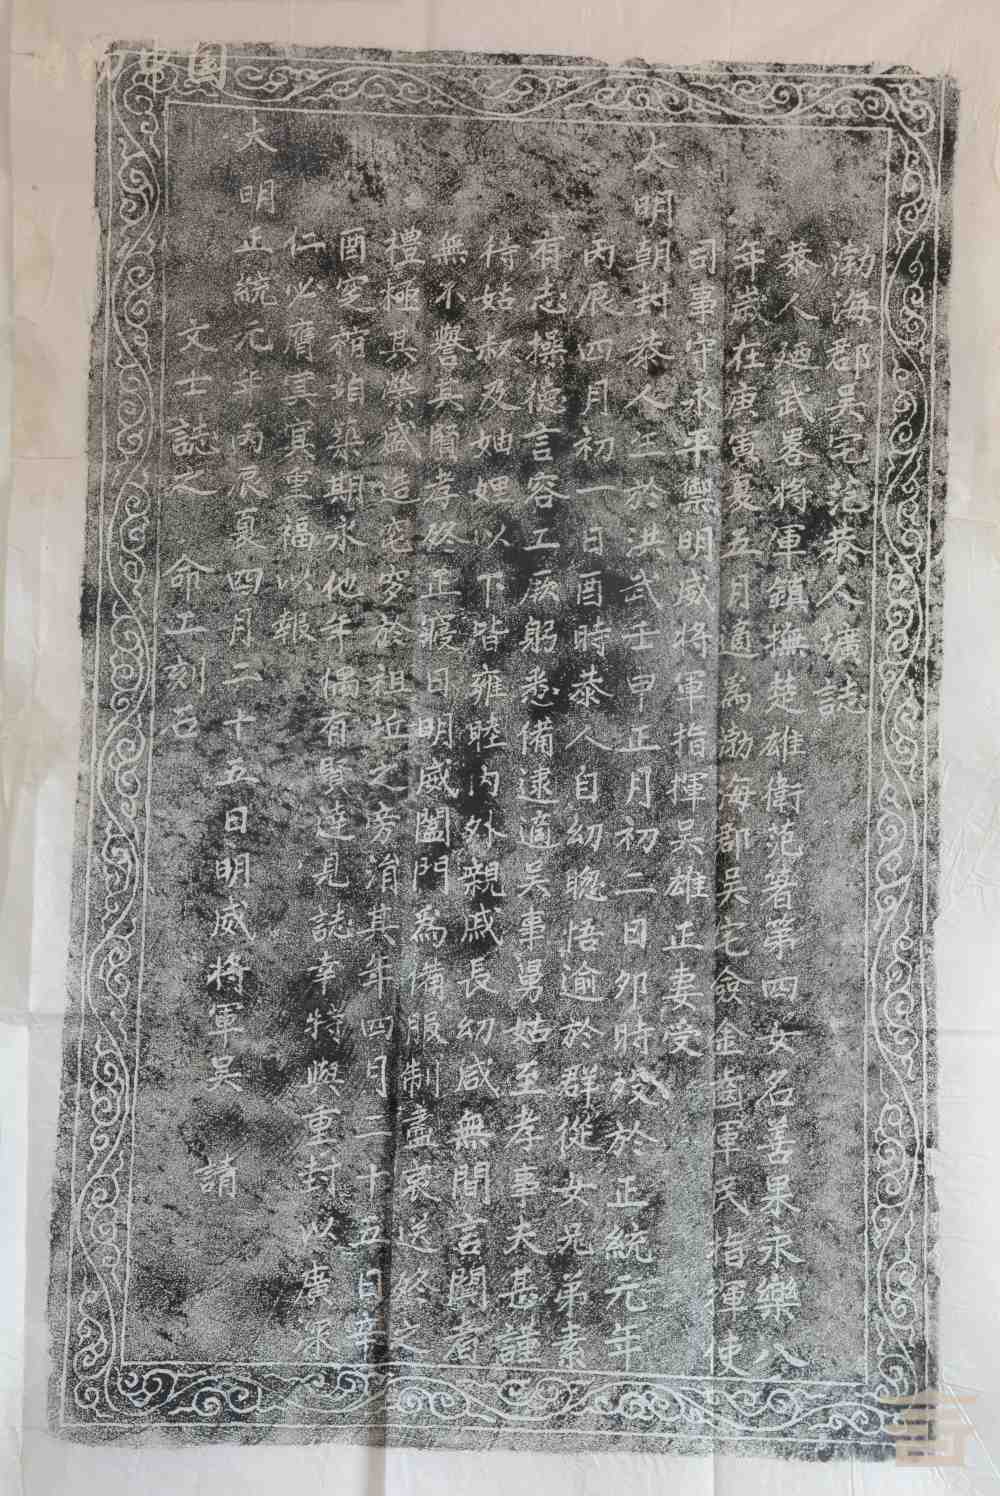 渤海郡吳宅范恭人壙誌
恭人廼武畧將軍鎮撫楚雄衛范署第四女名善果永樂八
年歲在庚寅夏五月適為渤海郡吳宅僉金齒軍民指揮使
司事守永平禦明威將軍指揮吳雄正妻受
大明朝封恭人生於洪武壬申正月初二日夘時歿於正統元年
丙辰四月初一日酉時恭人自幼聦悟逾於群從女兄弟素
有志操德言容工厥躬悉備逮適吳事舅姑至孝事夫甚謹
待姑叔及妯娌以下皆雍睦內外親戚長幼咸無間言聞者
無不譽其賢孝終正寢日明威闔門為備服制盡哀送終之
禮極其榮盛造宅穸於祖坵之旁涓其年四月二十五日辛
酉窆葙葙築期永他年偶有賢達見誌幸特與重封以廣深
仁必膺美冥重福以報
大明正統元年丙辰夏四月二十五日明威將軍吳 請
文士誌之 命工刻石
博物中国